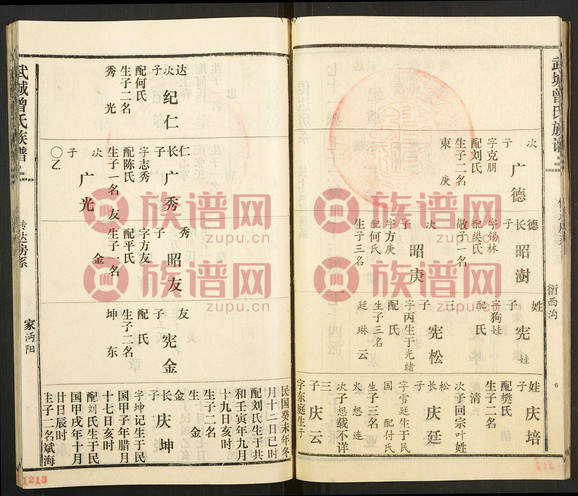 武城曾氏族谱
次子 广德
字克朋
配刘氏
生子二名
東 庚
德
长子 昭澍
字锡林
配樊氏
敬子一名
次子 昭庚
字方庚
配何氏
生子三名
姓
子 宪姓
字狗娃
配 氏
三子 宪松
字丙生于光绪
配 氏
生子三名
廷 琳 云
娃
长子 庆培
配樊氏
生子二名
清
次子回宗叶姓
松
长子 庆廷
字雪廷生于民
国 配付氏
生子三名
火 想 连
次子想载不详
三子 庆云
字东庭生于
衍西沟
6
达
次子 纪仁
配何氏
生子二名
秀 光
仁
长子 广秀
字志秀
配陈氏
生子一名
友
次子 广光
〇乙
秀
子 昭友
字方友
配平氏
生子一名
金
友
子 宪金
配 氏
生子二名
坤 东
民国癸未年冬
月十二日已时
配刘氏生于共
和壬寅年九月
十九日亥时
生子二名
生 金
金
长子 庆坤
字坤记生于民
国甲子年腊月
十七日亥时
配刘氏生于民
国甲戌年十月
廿日辰时
生子二名斌海
武城曾氏族谱
转达房系
家沔阳
1213
族谱网
zupu.cn
族谱网
zupu.cn
族谱网
zupu.cn
族谱网
zupu.cn